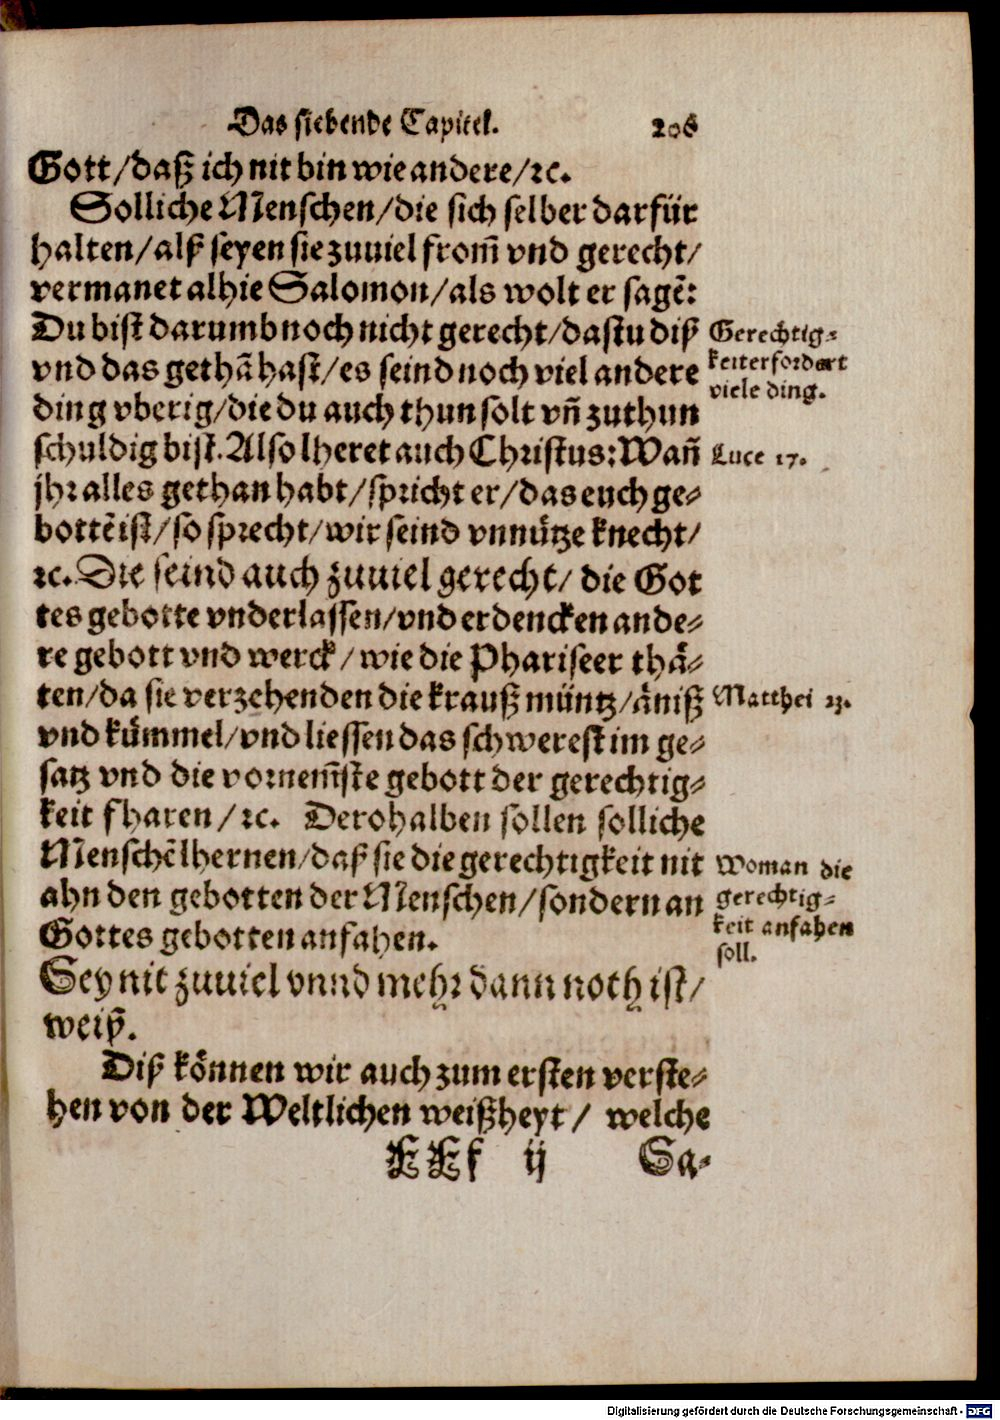 Das siebende Capitel. 206
Gott/daß ich nit bin wie andere/ꝛc.
Solliche Menschen/die sich selber darfür
halten/alß seyen sie zuuiel from̃ vnd gerecht/
vermanet alhie Salomon/als wolt er sagẽ:
Du bist darumb noch nicht gerecht/dastu diß
vnd das gethã hast/es seind noch viel andere
ding vberig/die du auch thun solt vñ zuthun
schuldig bist. Also lheret auch Christus: Wañ
jhr alles gethan habt/spricht er/das euch ge⸗
bottẽ ist/so sprecht/wir seind vnnütze knecht/
ꝛc. Die seind auch zuuiel gerecht/ die Got
tes gebotte vnderlassen/vnd erdencken ande⸗
re gebott vnd werck/wie die Phariseer thä⸗
ten/da sie verzehenden die krauß müntz/äniß
vnd kümmel/vnd liessen das schwerest im ge⸗
satz vnd die vornem̃ste gebott der gerechtig⸗
keit fharen/ꝛc. Derohalben sollen solliche
Menschẽ lhernen/daß sie die gerechtigkeit nit
ahn den gebotten der Menschen/sondern an
Gottes gebotten anfahen.
Sey nit zuuiel vnnd mehr dann noth ist/
weiß.
Diß können wir auch zum ersten verste⸗
hen von der Weltlichen weißheyt/ welche
KKk ij Sa⸗
Gerechtig⸗
keit erfordert
viele ding.
Luce 17.
Matthei 23.
Wo man die
gerechtig⸗
keit anfahen
soll.
Digitalisierung gefördert durch die Deutsche Forschungsgemeinschaft - DFG